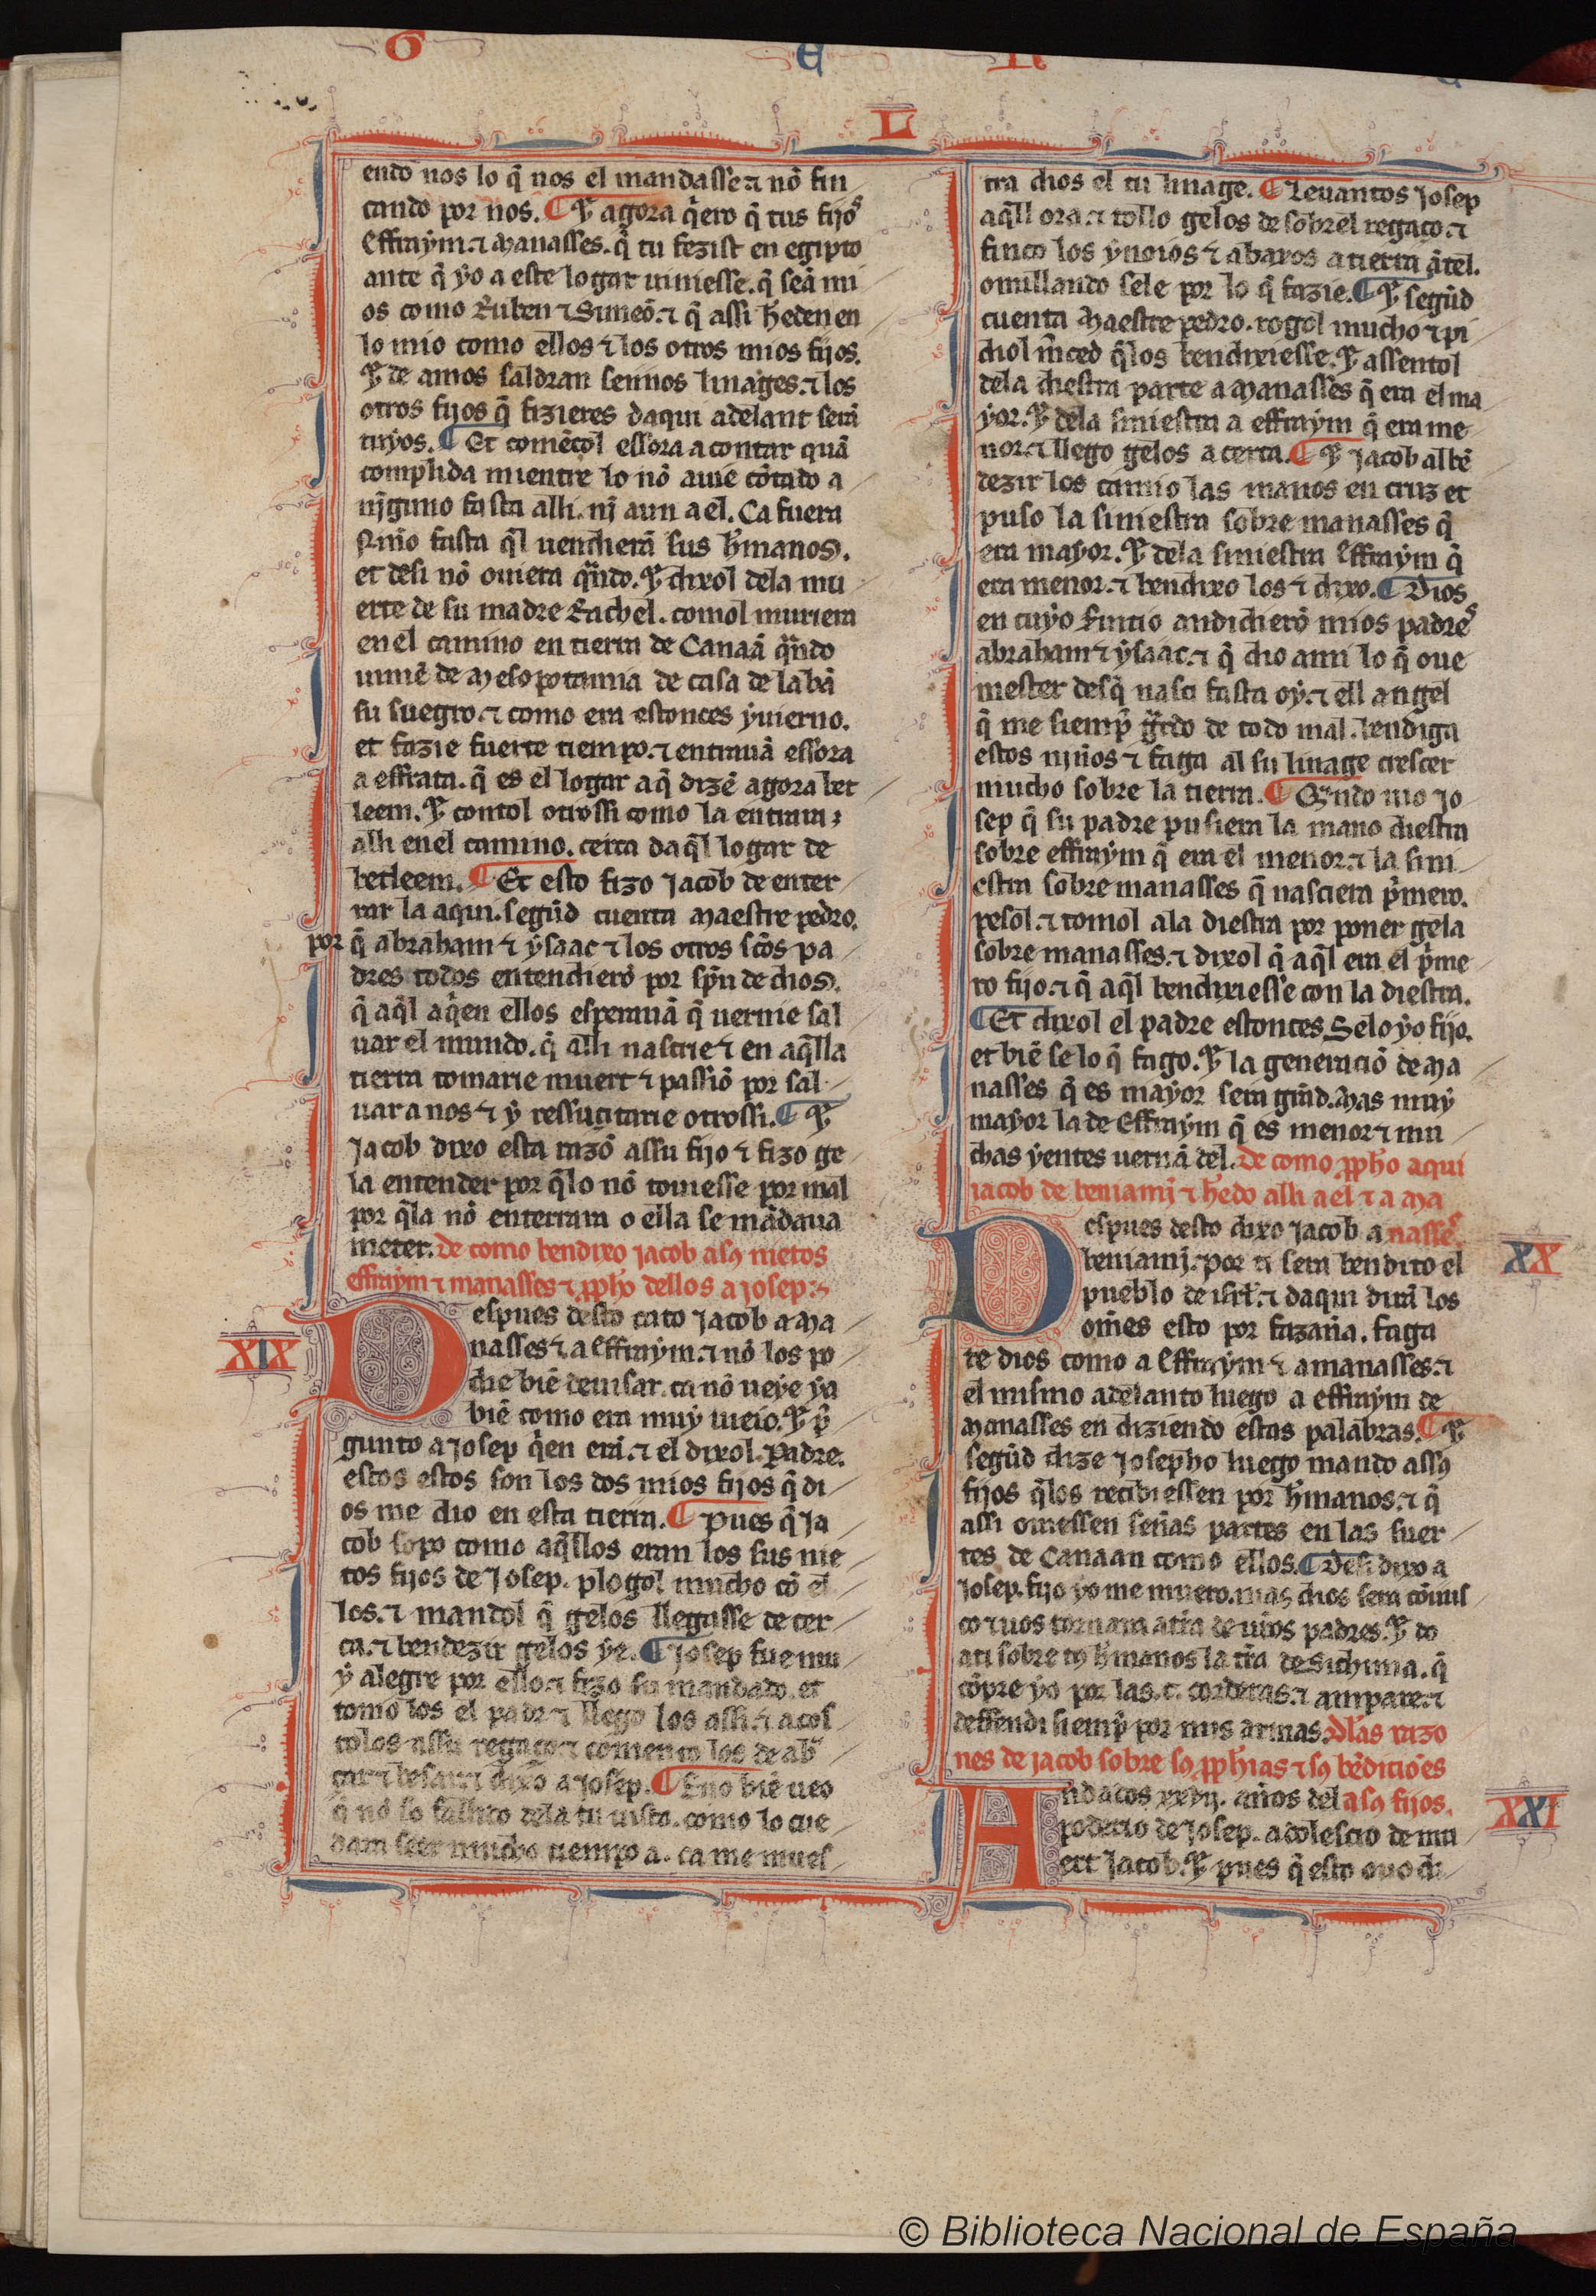 G E N
L
endo nos lo q̃ nos el mandasse ⁊ nõ fin
cando por nos. ¶ Et agora q̃ero q̃ tus fijos
Effraym. ⁊ Manasses. q̃ tu fezist en egipto
ante q̃ yo a este logar uiniesse. q̃ seã mi
os como Ruben ⁊ Simeõ. ⁊ q̃ assi h̃eden en
lo mio como ellos ⁊ los otros mios fijos.
Et de amos saldran sennos linages. ⁊ los
otros fijos q̃ fizieres daqui adelant serã
tuyos. ¶ Et comẽçol essora a contar quã
complida mientre lo nõ auie cõtado a
nĩguno fasta alli. nĩ aun a el. Ca fuera
fasta q̃l uendierã sus h̃manos.
et desi nõ ouiera q̃ndo. Et dixol dela mu
erte de su madre Rachel. comol muriera
enel camino en tierra de Canaã q̃ndo
uiniẽ de Mesopotamia de casa de labã
su suegro. ⁊ como era estonces yuierno.
et fazie fuerte tiempo. ⁊ entrauã essora
a effrata. q̃ es el logar a q̃ dizẽ agora bet
leem. Et contol otrossi como la entrara
alli enel camino. cerca daq̃l logar de
betleem. ¶ Et esto fizo Jacob de enter
rar la aqui. segũd cuenta Maestre pedro.
por q̃ abraham ⁊ ysaac ⁊ los otros sc̃os pa
dres todos entendierõ por sp̃u de dios.
q̃ aq̃l aq̃en ellos esperauã q̃ uernie sal
uar el mundo. q̃ alli nascrie ⁊ en aq̃lla
tierra tomarie muert ⁊ passiõ por sal
uar a nos ⁊ y ressuçitarie otrossi. ¶ Et
Jacob dixo esta razõ assu fijo ⁊ fizo ge
la entender por q̃lo nõ touiesse por mal
por q̃la nõ enterrara o ella se mãdaua
meter. de como bendixo jacob a sus nietos
effraym ⁊ manasses ⁊ pp̃ho dellos a josep.
XIX
Despues desto cato Jacob a Ma
nasses ⁊ a Effraym. ⁊ nõ los po
die biẽ deuisar. ca nõ ueye ya
biẽ como era muy uieio. Et p̃
gunto a Josep q̃en erã. ⁊ el dixol. Padre.
estos estos son los dos mios fijos q̃ di
os me dio en esta tierra. ¶ Pues q̃ Ja
cob sopo como aq̃llos eran los sus nie
tos fijos de Josep. plogol mucho cõ el
los. ⁊ mandol q̃ gelos llegasse de cer
ca. ⁊ bendezir gelos ye. ¶ Josep fue mu
y alegre por ello. ⁊ fizo su mandado. et
tomo los el padre ⁊ llego los assi. ⁊ acos
tolos assu regaço. ⁊ començo los de abra
çar ⁊ besar. ⁊ dixo a Josep. ¶ Fijo biẽ ueo
q̃ nõ so fallido dela tu uista. como lo cue
dara seer mucho tiempo a. ca me mues
tra dios el tu linage. ¶ Leuantos Josep
aq̃ll ora. ⁊ tollo gelos de sobrel regaço. ⁊
finco los ynoios ⁊ abaxos a tierra antel.
omillando sele por lo q̃ fazie. ¶ Et segũd
cuenta Maestre pedro. rogol mucho ⁊ pi
diol m̃ced q̃los bendixiesse. Et assentol
dela diestra parte a Manasses q̃ era el ma
yor. Et dela siniestra a effraym q̃ era me
nor. ⁊ llego gelos a cerca. ¶ Et Jacob al bẽ
dezir los camio las manos en cruz et
puso la siniestra sobre manasses q̃
era mayor. Et dela siniestra Effraym q̃
era menor. ⁊ bendixo los ⁊ dixo. ¶ Dios
en cuyo seruicio andidierõ mios padres
abraham ⁊ ysaac. ⁊ q̃ dio ami lo q̃ oue
mester desq̃ nasci fasta oy. ⁊ ell angel
q̃ me siemp̃ g̃rdo de todo mal. bendiga
estos niños ⁊ faga al su linage crescer
mucho sobre la tierra. ¶ Q̃ndo uio Jo
sep q̃ su padre pusiera la mano diestra
sobre effraym q̃ era el menor. ⁊ la sini
estra sobre manasses q̃ nasciera p̃mero.
pesol. ⁊ tomol ala diestra por poner gela
sobre manasses. ⁊ dixol q̃ aq̃l era el p̃me
ro fijo. ⁊ q̃ aq̃l bendixiesse con la diestra.
¶ Et dixol el padre estonces. Selo yo fijo.
et biẽ se lo q̃ fago. Et la generaciõ de Ma
nasses q̃ es mayor sera grãd. Mas muy
mayor la de Effraym q̃ es menor ⁊ mu
chas yentes uernã del. de como pp̃ho aqui
jacob de beniamĩ ⁊ h̃edo alli a el ⁊ a ma
XX
Despues desto dixo Jacob a nasses.
beniamĩ. por ti sera bendito el
pueblo de isrl̃. ⁊ daqui dirã los
om̃es esto por fazaña. faga
te dios como a Effraym ⁊ a manasses. ⁊
el mismo adelanto luego a effraym de
Manasses en diziendo estas palabras. ¶ Et
segũd dize Josepho luego mando assus
fijos q̃los recibiessen por h̃manos. ⁊ q̃
assi ouiessen señas partes en las suer
tes de Canaan como ellos. ¶ Desi dixo a
Josep. fijo yo me muero. mas dios sera cõuus
co ⁊ uos tornara a tr̃a de ur̃os padres. Et do
ati sobre tus h̃manos la tr̃a de Sichima. q̃
cõpre yo por las .c. corderas. ⁊ ampare. ⁊
deffendi siemp̃ por mis armas. Dlas razo
nes de jacob sobre sus pp̃hias ⁊ sus bẽdiciões
XXI
Andados años del a sus fijos.
poderio de Josep. adolescio de mu
ert Jacob. Et pues q̃ esto ouo di
© Biblioteca Nacional de España